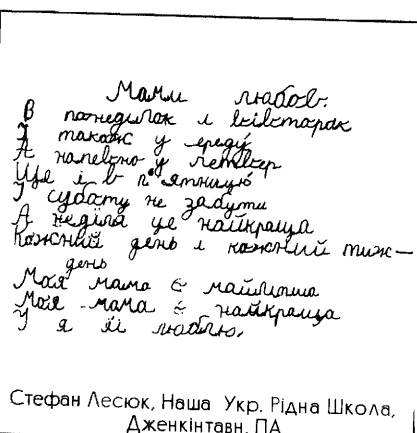 Мами любов.
В понеділок і вівторок
І також у среду
А напевно у четвер
Ще і в п'ятницю
І суботу не забути
А неділя це найкраща
Кожний день і кожний тиж—
день
Моя мама є наймила
Моя мама є найкраща
І я її люблю.
Стефан Лесюк, Наша Укр. Рідна Школа,
Дженкінтавн, ПА